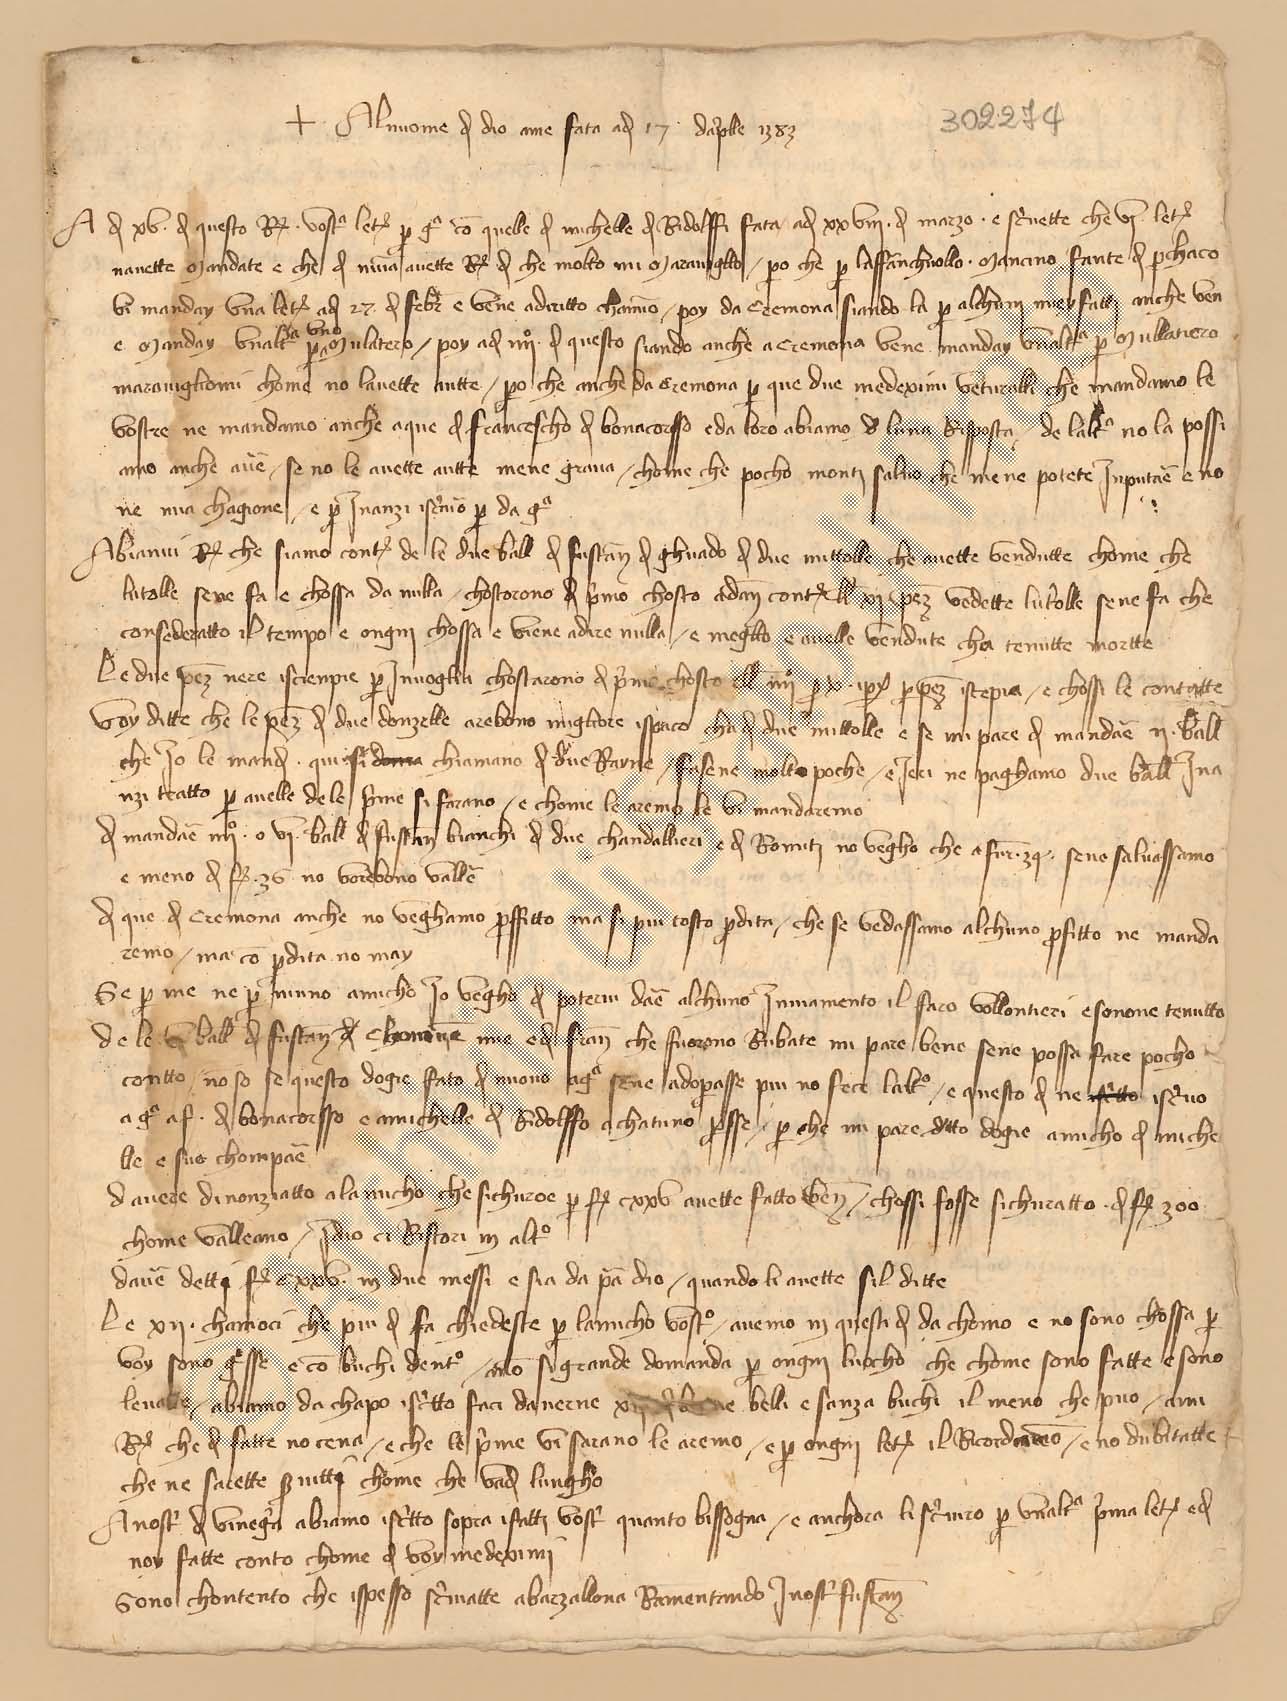 + Al nuome đ dio ame fata ađ 17 daprille 1383
302274
A đ xv. đ questo Rx. vostª letx p gª cō quelle đ michelle đ Ridolffi fata ađ xxviii. đ marzo. e scrivette che vi letx
navette mandate e che đ niuna avette Rx đ che molto mi maraviglio / po che p laffanchiullo. mancino fante đ pchaco
vi manday una letx ađ 27 đ febr e vene adiritto chamio / poy da Cremona siando la p alchuni miey fatti anche ven
e manday unaltra p uno mulatero / poy ađ iiiiº. đ questo siando anche a Cremona vene manday unaltª p mullatiero
maravigliomi chome no lavette autte / po che anche da Cremona p que due medeximi veturalli che mandamo le
vostre ne mandamo anche a que đ francescho đ bonacorsso e da loro abiamo đ luna Risposta / de laltª no la possi
amo anche avē / se no le avette autte mene grava / chome che pocho monti salvo che me ne potete Inputaē e no
ne mia chagione / e p Inanzi iscrivō p da gª
Abiamui Rx che siamo contx de le due ball đ fustan đ ghuado đ due mittolle che avette vendutte chome che
lutolle se ne fa e chossa da nulla / chostorono đ primo chosto adan contx ll xii pez vedette lutolle se ne fa che
consederatto il tempo e ongni chossa e viene a dire nulla / e meglio e avelle vendute cha tenutte mortte
Le due pez nere iscienpie p Invoglia chostarono đ prime chosto ll iiiiº p x. ipx p pez iscepia / e chossi le contatte
Voy ditte che le pez đ due donzelle arebono migliore ispaco cha đ due mittolle e se mi pare đ mandaē ii. ball
che Io le manđ. qui si chiamano đ due Barne / fasene molto poche / e Ieri ne paghamo due ball Ina
nzi tratto p avelle de le prime si farano / e chome le aremo le vi mandaremo
đ mandaē iiiiº. o vi. ball đ fustan bianchi đ due chandallieri e đ Romiti no vegho che a fior. 34. se ne salvassamo
e meno đ fx. 36 no vorebono vallē
đ que đ Cremona anche no veghamo proffitto ma si piu tosto pdita / che se vedassamo alchuno profitto ne manda
remo / ma cō pdita no may
Se p me ne p niuno amicho Io vegho đ potervi daē alchuno Inviamento il faro vollontieri e sonone tenutto
de le v ball đ fustan đ Chomune mie e đ fran che furono Rubate mi pare bene se ne possa fare pocho
contto / no so se questo dogie fato đ nuovo a gª se ne adoprasse piu no fece laltº / e questo đ ne iscrivo
a gª a f. đ bonacorsso e a michelle đ Ridolffo a chatuno p sse / p che mi pare ditto dogie amicho đ miche
lle e suo chompaē
davere dinonziatto a lamicho che sichuroe p fx cxxv avette fatto ben / chossi fosse sichuratto. đ fx 300
chome valleano / Idio ci Ristori in altº
davē detti fx cxxv. in due messi e sia da pā dio / quando li avette sil ditte
Le xii. chamoci che piu đ fa chiedeste p lamicho vostº / avemo in questi đ da chomo e no sono chossa p
voy sono grosse e cō buchi dentº / anō si grande domanda p ongni luocho che chome sono fatte e sono
levatte / abiamo da chapo iscritto faci daverne xii belli e sanza buchi il meno che puo / avii
Rx che đ fatte no cena / e che le prime vi sarano le aremo / e p ongni letx il Ricordaremo / e no dubitatte
che ne sarette servitti chome che vađ lungho
A nostr đ vinegia abiamo iscritto sopra i fatti vostr quanto bissogna / e anchora li scrivro p unaltª prima letx e đ
noy fatte conto chome đ voy medeximi
Sono chontento che ispesso scrivatte a barzallona Ramentando I nostr fustan